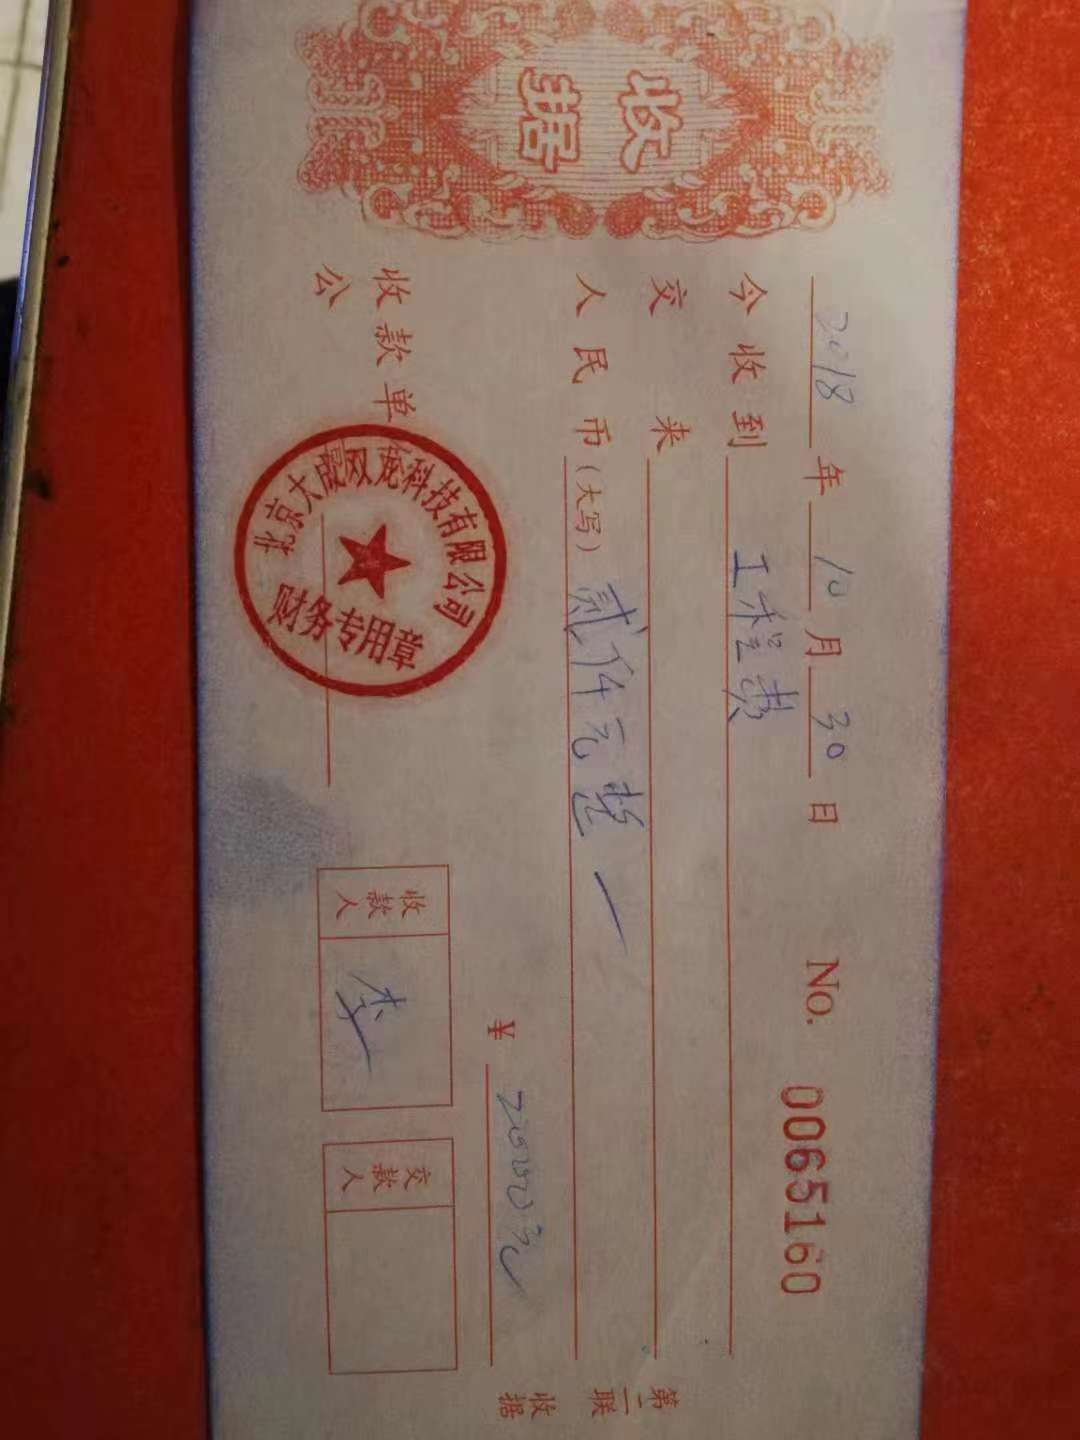 收据
2018年10月30日 No. 0065160
今收到 工程费
交来
人民币(大写) 贰仟元整
¥ 2000元
收款单
公
北京大鹿双龙科技有限公司
财务专用章
收款人 李
交款人
第二联 收据